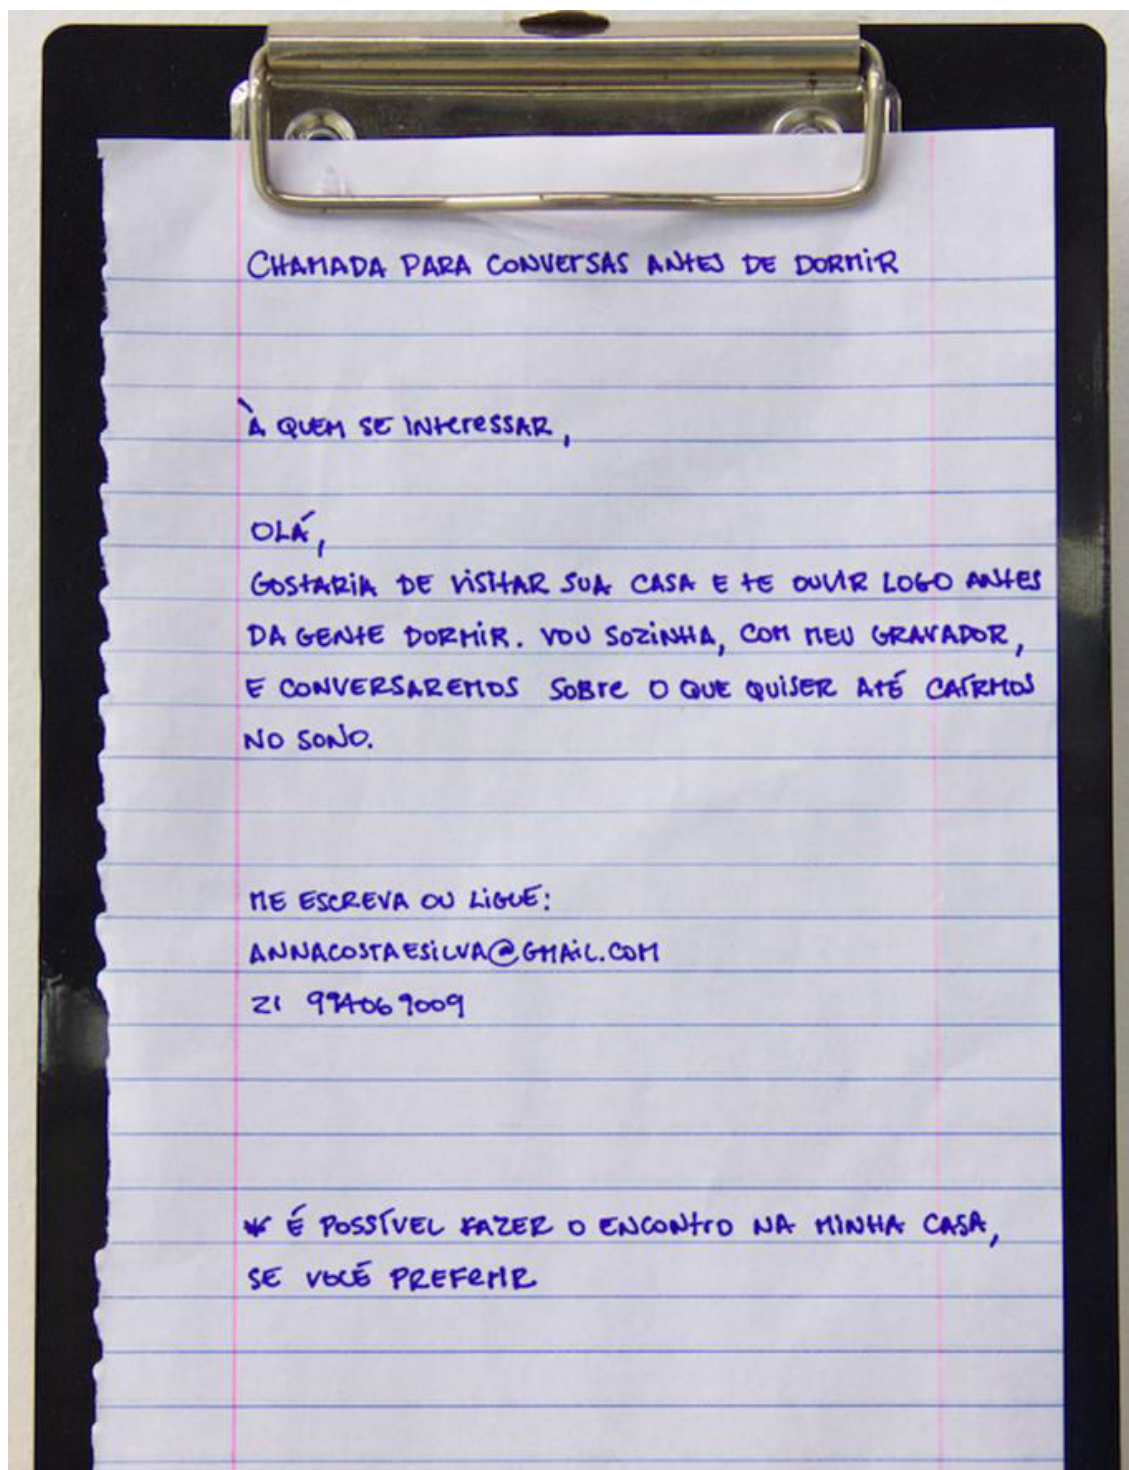 CHAMADA PARA CONVERSAS ANTES DE DORMIR
À QUEM SE INTERESSAR,
OLÁ,
GOSTARIA DE VISITAR SUA CASA E TE OUVIR LOGO ANTES
DA GENTE DORMIR. VOU SOZINHA, COM MEU GRAVADOR,
E CONVERSAREMOS SOBRE O QUE QUISER ATÉ CAÍRMOS
NO SONO.
ME ESCREVA OU LIGUE:
ANNACOSTAESILVA@GMAIL.COM
21 994069009
* É POSSÍVEL FAZER O ENCONTRO NA MINHA CASA,
SE VOCÊ PREFERIR